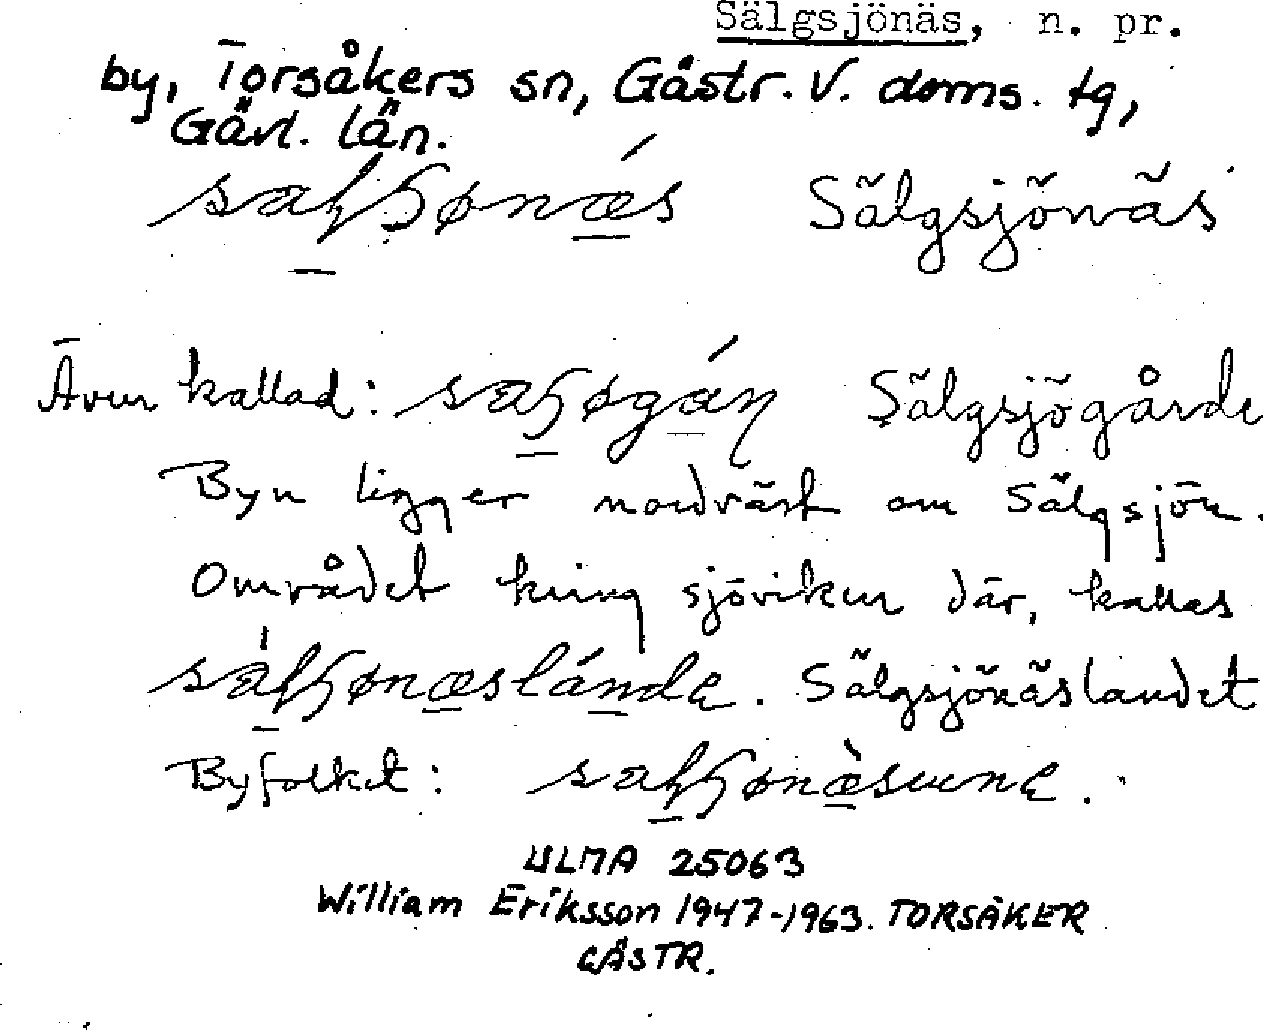 Sälgsjönäs, n. pr.
by, Torsåkers sn, Gästr. V. doms. tg,
Gävl. län.
Sälgsjönäs
Även kallad: Sälgsjögårde
Byn ligger nordväst om Sälgsjön.
Området kring sjöviken där, kallas
Sälgsjönäslandet
Byfolket:
ULMA 25063
William Eriksson 1947-1963. TORSÅKER
GÄSTR.